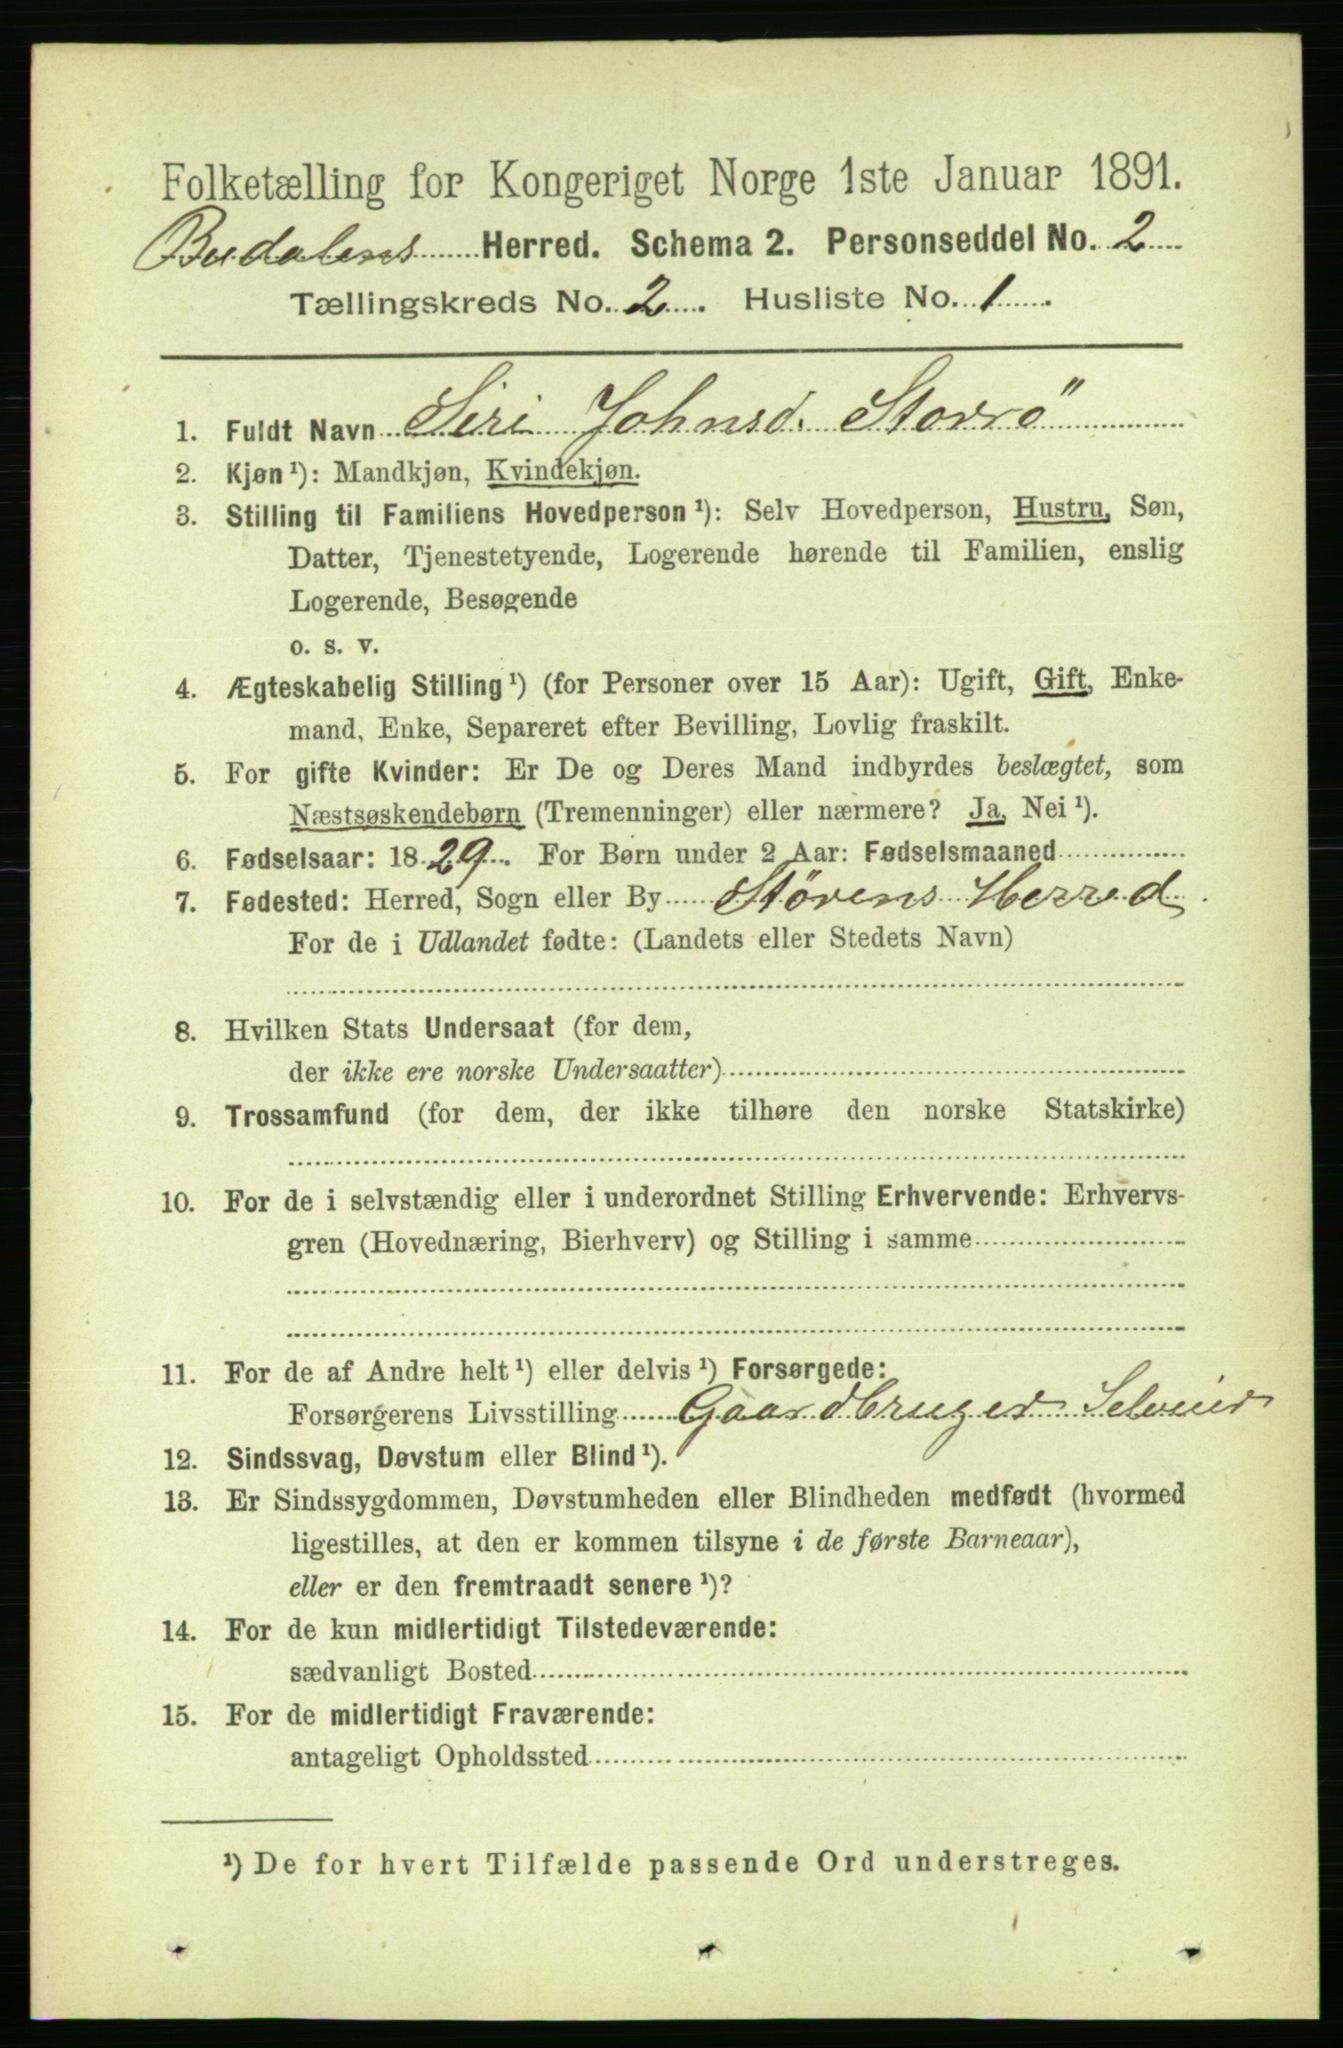 Folketælling for Kongeriget Norge 1ste Januar 1891.
Budalens Herred. Schema 2. Personseddel No. 2
Tællingskreds No. 2. Husliste No. 1.
1. Fuldt Navn Siri Johnsd. Storrö
2. Kjøn¹): Mandkjøn, Kvindekjøn.
3. Stilling til Familiens Hovedperson¹): Selv Hovedperson, Hustru, Søn,
Datter, Tjenestetyende, Logerende hørende til Familien, enslig
Logerende, Besøgende
o. s. v.
4. Ægteskabelig Stilling¹) (for Personer over 15 Aar): Ugift, Gift, Enke-
mand, Enke, Separeret efter Bevilling, Lovlig fraskilt.
5. For gifte Kvinder: Er De og Deres Mand indbyrdes beslægtet, som
Næstsøskendebørn (Tremenninger) eller nærmere? Ja, Nei¹).
6. Fødselsaar: 1829. For Børn under 2 Aar: Fødselsmaaned
7. Fødested: Herred, Sogn eller By Størens Herred.
For de i Udlandet fødte: (Landets eller Stedets Navn)
8. Hvilken Stats Undersaat (for dem,
der ikke ere norske Undersaatter)
9. Trossamfund (for dem, der ikke tilhøre den norske Statskirke)
10. For de i selvstændig eller i underordnet Stilling Erhvervende: Erhvervs-
gren (Hovednæring, Bierhverv) og Stilling i samme
11. For de af Andre helt¹) eller delvis¹) Forsørgede:
Forsørgerens Livsstilling Gaardbruger Selveier
12. Sindssvag, Døvstum eller Blind¹).
13. Er Sindssygdommen, Døvstumheden eller Blindheden medfødt (hvormed
ligestilles, at den er kommen tilsyne i de første Barneaar),
eller er den fremtraadt senere¹)?
14. For de kun midlertidigt Tilstedeværende:
sædvanligt Bosted
15. For de midlertidigt Fraværende:
antageligt Opholdssted
¹) De for hvert Tilfælde passende Ord understreges.